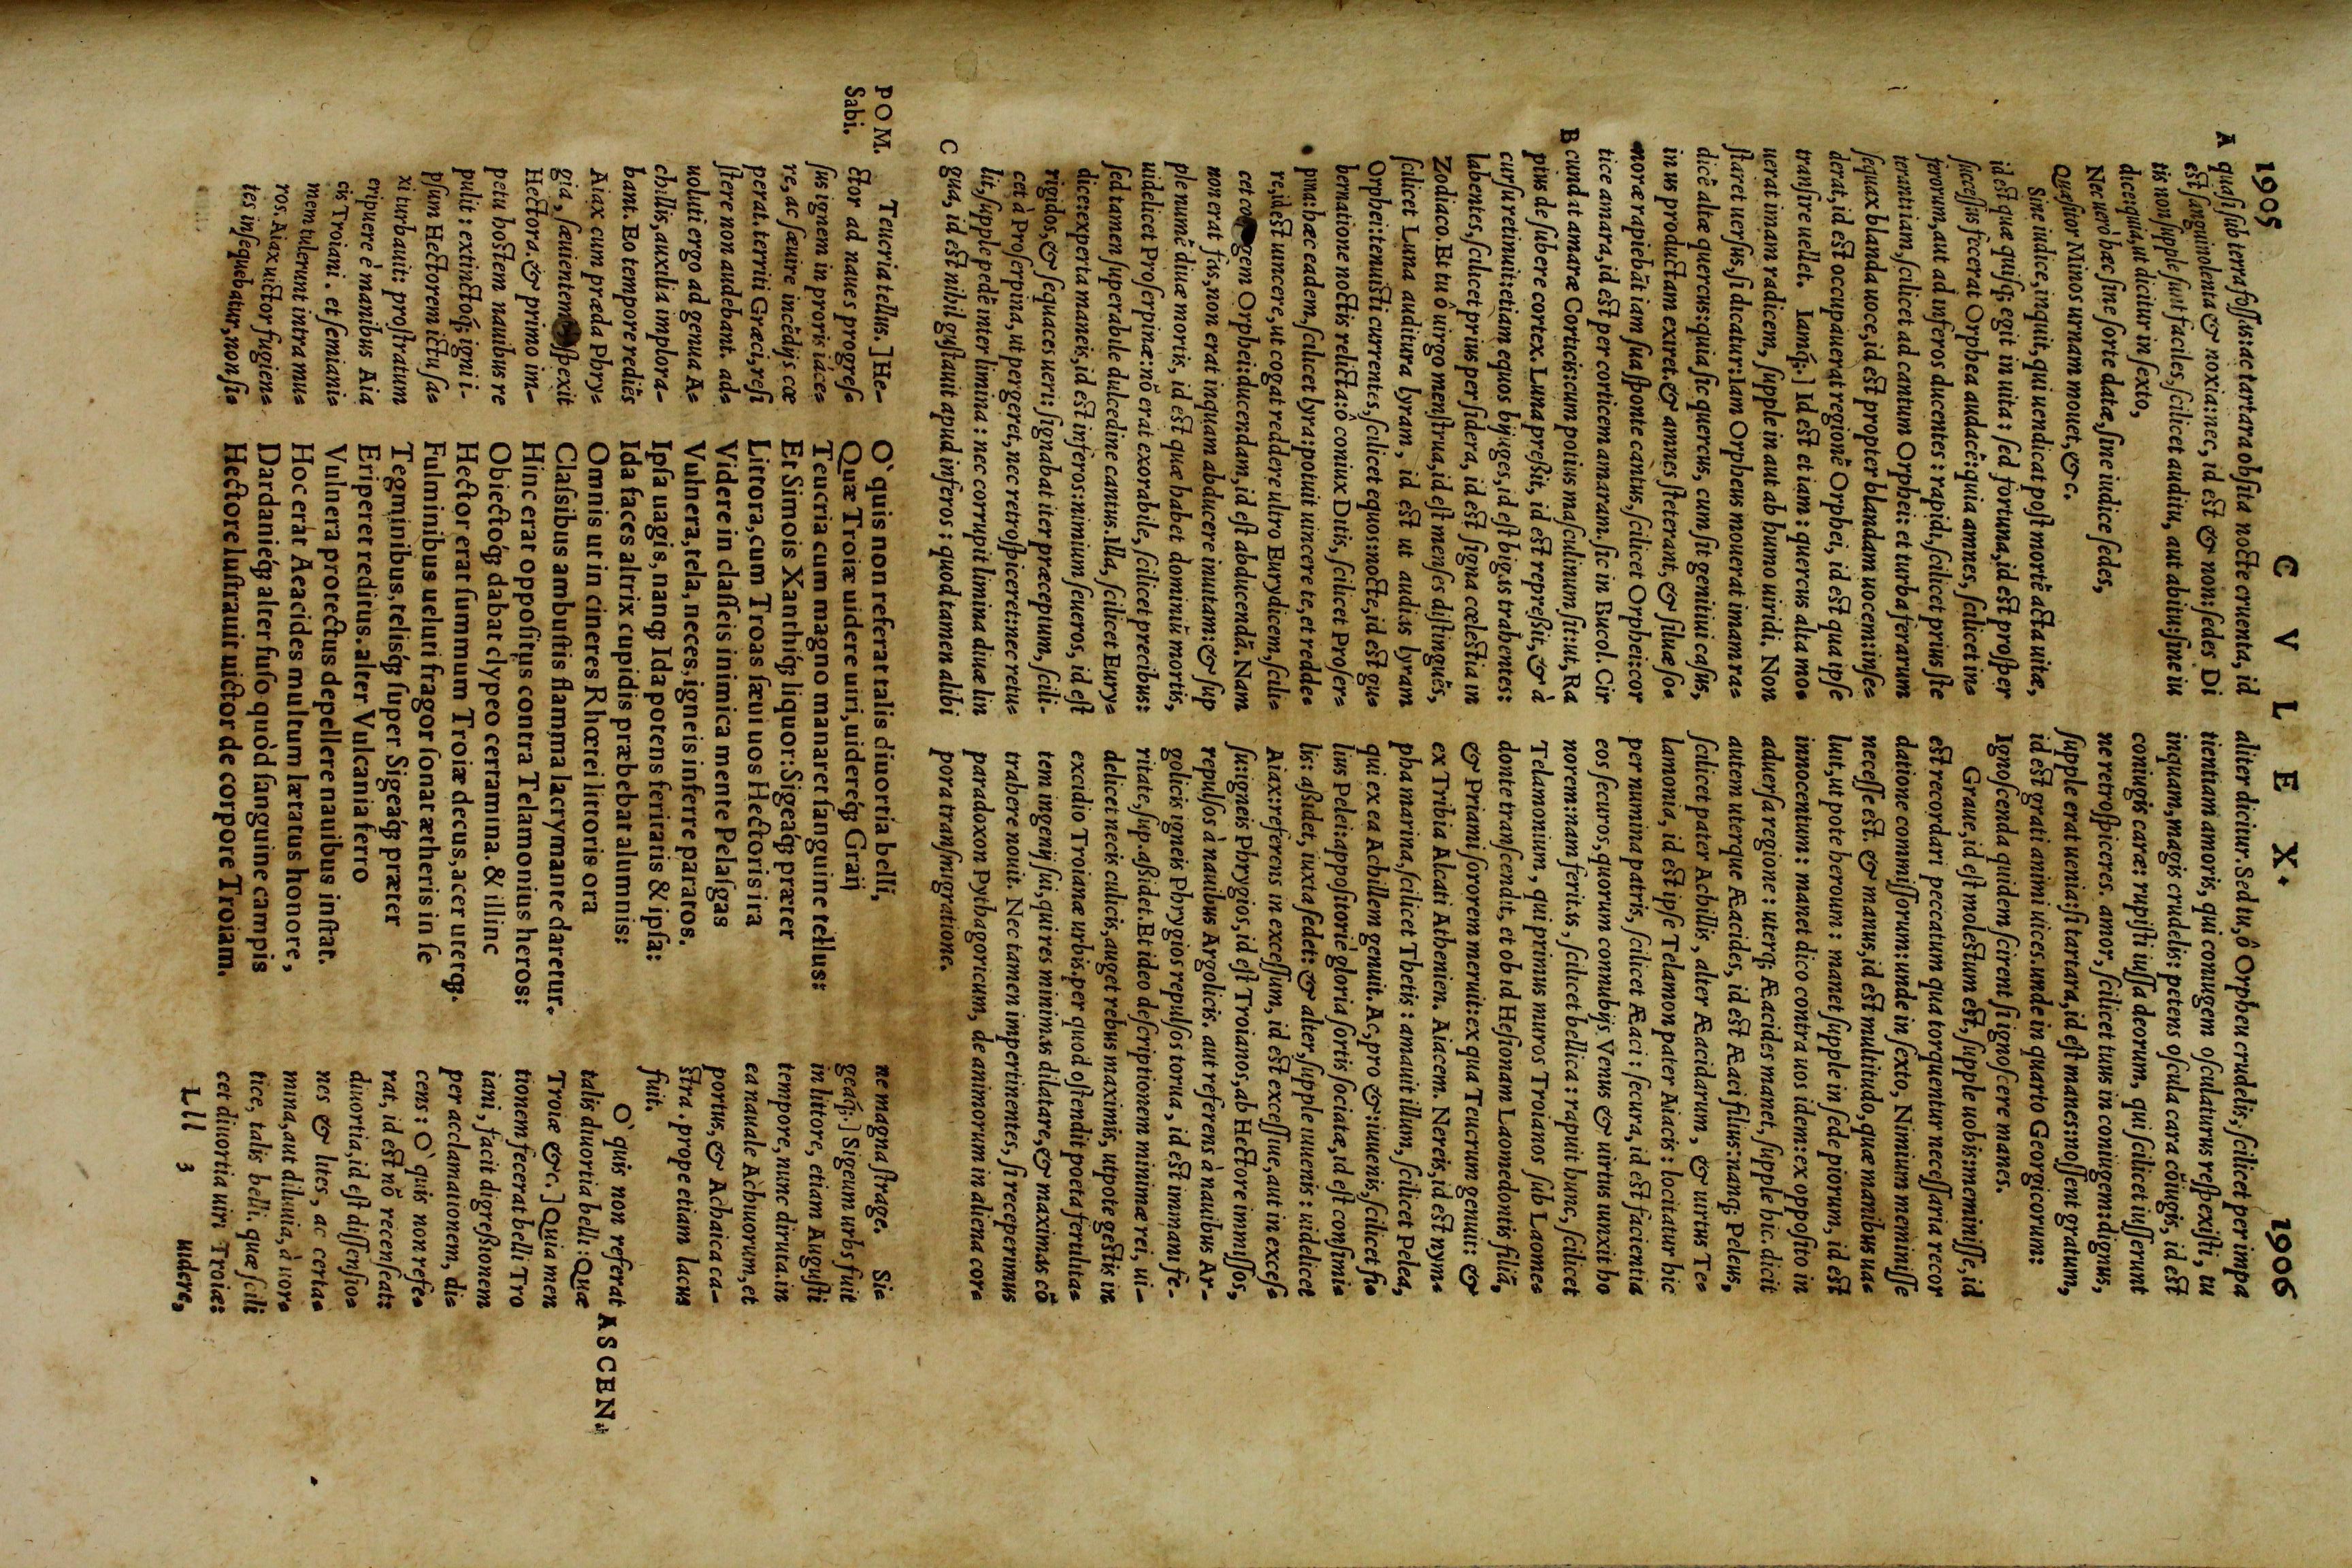 1905
C V L E X.
1906
A quasi sub terra fossus: ac tartara obsita nocte cruenta, id
est sanguinolenta & noxia: nec, id est & non: sedes Di
tis non supple sunt faciles, scilicet auditu, aut abitu: sine iu
dice: quia, ut dicitur in sexto,
Nec uerò hæc sine sorte datæ, sine iudice sedes,
Quæsitor Minos urnam mouet, &c.
Sine iudice, inquit, qui uendicat post mortē acta uitæ,
id est quæ quisq; egit in uita: sed fortuna, id est prosper
successus fecerat Orphea audacē: quia amnes, scilicet in=
ferorum, aut ad inferos ducentes: rapidi, scilicet prius ste
terant iam, scilicet ad cantum Orphei: et turba ferarum
sequax blanda uoce, id est propter blandam uocem: inse=
derat, id est occupauerat regionē Orphei, id est qua ipse
transire uellet. Iamq́;.] Id est et iam: quercus alta mo=
uerat imam radicem, supple in aut ab humo uiridi. Non
staret uersus, si dicatur: Iam Orpheus mouerat imam ra=
dicē altæ quercus: quia sic quercus, cum sit genitiui casus,
in us productam exiret. & amnes steterant, & siluæ so=
noræ rapiebāt iam sua sponte cātus, scilicet Orphei: cor
tice amara, id est per corticem amaram. sic in Bucol. Cir
B cundat amaræ Corticis: cum potius masculinum sit: ut, Ra
ptus de subere cortex. Luna preßit, id est repreßit, & à
cursu retinuit: etiam equos bijuges, id est bigas trahentes:
labentes, scilicet prius per sidera, id est signa cœlestia in
Zodiaco. Et tu ô uirgo menstrua, id est menses distinguēs,
scilicet Luna auditura lyram, id est ut audias lyram
Orphei: tenuisti currentes, scilicet equos: nocte, id est gu=
bernatione noctis relicta: ô coniux Ditis, scilicet Proser=
pina: hæc eadem, scilicet lyra: potuit uincere te, et redde=
re, id est uincere, ut cogat reddere ultro Eurydicem, scili=
cet gem Orphei: ducendam, id est abducendā. Nam
non erat fas, non erat inquam abducere inuitam: & sup
ple numē diuæ mortis, id est quæ habet dominiū mortis,
uidelicet Proserpinæ: nō erat exorabile, scilicet precibus:
sed tamen superabile dulcedine cantus. Illa, scilicet Eury=
dice: experta maneis, id est inferos: nimium seueros, id est
rigidos, & sequaces ueri: signabat iter præceptum, scili-
cet à Proserpina, ut pergeret, nec retrospiceret: nec retu=
lit, supple pedē inter limina: nec corrupit limina diuæ lin
C gua, id est nihil gustauit apud inferos: quod tamen alibi
aliter dicitur. Sed tu, ô Orpheu crudelis, scilicet per impa
tientiam amoris, qui coniugem osculaturus respexisti, tu
inquam, magis crudelis: petens oscula cara cōiugis, id est
coniugis caræ: rupisti iussa deorum, qui scilicet iusserunt
ne retrospiceres. amor, scilicet tuus in coniugem: dignus,
supple erat uenia: si tartara, id est manes: nossent gratum,
id est grati animi uices. unde in quarto Georgicorum:
Ignoscenda quidem scirent si ignoscere manes.
Graue, id est molestum est, supple uobis: meminisse, id
est recordari peccatum qua torquentur necessaria recor
datione commissorum: unde in sexto, Nimium meminisse
necesse est. & manus, id est multitudo, quæ manibus ua=
luit, ut pote heroum: manet supple in sede piorum, id est
innocentum: manet dico contra uos idem: ex opposito in
aduersa regione: uterq; Æacides manet, supple hic. dicit
autem uterque Æacides, id est Æaci filius: nanq; Peleus,
scilicet pater Achillis, alter Æacidarum, & uirtus Te=
lamonia, id est ipse Telamon pater Aiacis: locitatur hic
per numina patris, scilicet Æaci: secura, id est facientia
eos securos, quorum connubijs Venus & uirtus iunxit ho
norem: nam feritas, scilicet bellica: rapuit hunc, scilicet
Telamonium, qui primus muros Troianos sub Laome=
donte transcendit, et ob id Hesionam Laomedontis filiā,
& Priami sororem meruit: ex qua Teucrum genuit: &
ex Tribia Alcati Athenien. Aiacem. Nereis, id est nym=
pha marina, scilicet Thetis: amauit illum, scilicet Pelea,
qui ex ea Achillem genuit. Ac, pro &: iuuenis, scilicet fi=
lius Pelei: appositorie gloria sortis sociatæ, id est consimi=
lis: aßidet, iuxta sedet: & alter, supple iuuenis: uidelicet
Aiax: referens in excessum, id est excessiue, aut in exces=
sus: igneis Phrygios, id est Troianos, ab Hectore immissos,
repulsos à nauibus Argolicis. aut referens à nauibus Ar-
golicis igneis Phrygios repulsos torua, id est immani fe-
ritate, sup. aßidet. Et ideo descriptionem minimæ rei, ui-
delicet necis culicis, auget rebus maximis, utpote gestis in
excidio Troianæ urbis. per quod ostendit poeta fertilita=
tem ingenij sui, qui res minimas dilatare, & maximas cō
trahere nouit. Nec tamen impertinentes, si receperimus
paradoxon Pythagoricum, de animorum in aliena cor=
pora transmigratione.
POM.
Sabi.
Teucria tellus.] He-
ctor ad naues progres=
sus ignem in proris iáce=
re, ac sæuire incēdijs cœ
perat. territi Græci, resi
stere non audebant. ad=
uoluti ergo ad genua A=
chillis, auxilia implora-
bant. Eo tempore rediēs
Aiax cum præda Phry=
gia, sæuientem spexit
Hectora. & primo im-
petu hostem nauibus re
pulit: extinctoq́; igni i-
psum Hectorem ictu sa=
xi turbauit: prostratum
eripuere è manibus Aia
cis Troiani. et semiani=
mem tulerunt intra mu=
ros. Aiax uictor fugien=
tes insequebatur, non si=
O' quis non referat talis diuortia belli,
Quæ Troiæ uidere uiri, uidereq́; Graij
Teucria cum magno manaret sanguine tellus:
Et Simois Xanthiq́; liquor: Sigeaq́; præter
Littora, cum Troas sæui uos Hectoris ira
Videre in classeis inimica mente Pelasgas
Vulnera, tela, neces, igneis inferre paratos.
Ipsa uagis, nanq; Ida potens feritatis & ipsa:
Ida faces altrix cupidis præbebat alumnis:
Omnis ut in cineres Rhœtei littoris ora
Classibus ambustis flamma lacrymante daretur.
Hinc erat oppositus contra Telamonius heros:
Obiectoq́; dabat clypeo certamina. & illinc
Hector erat summum Troiæ decus, acer uterq;.
Fulminibus ueluti fragor sonat ætheris in se
Tegminibus, telisq́; super Sigeaq́; præter
Eriperet reditus. alter Vulcania ferro
Vulnera protectus depellere nauibus instat.
Hoc erat Aeacides multum lætatus honore,
Dardanieq́; alter fuso quòd sanguine campis
Hectore lustrauit uictor de corpore Troiam.
ne magna strage. Si=
geaq́;.] Sigeum urbs fuit
in littore, etiam Augusti
tempore, nunc diruta. in
ea nauale Achiuorum, et
portus, & Achaica ca-
stra. prope etiam lacus
fuit.
O' quis non referat
talis diuortia belli: Quæ
Troiæ &c.] Quia men
tionem fecerat belli Tro
iani, facit digreßionem
per acclamationem, di=
cens: O' quis non refe=
rat, id est nō recenseat:
diuortia, id est dissensio=
nes & lites, ac certa=
mina, aut diluuia, à uor=
tice, talis belli. quæ scili
cet diuortia uiri Troiæ:
ASCEN.
Lll 3
uidere,